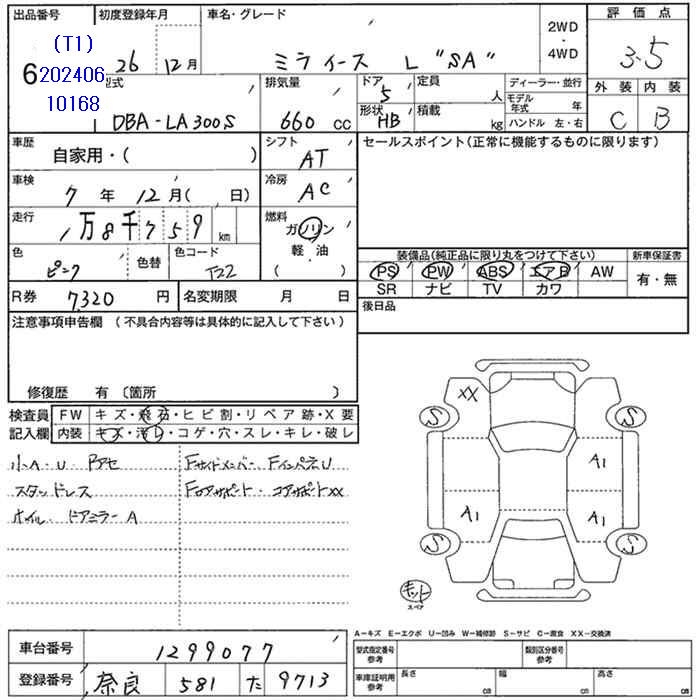 出品番号 初度登録年月 車名・グレード 2WD ・ 4WD 評価点
(T1)
6 202406 26 12月 ミライース L "SA" 3.5
10168
型式 排気量 ドア 定員 ディーラー・並行 外装 内装
5 人 モデル年式 年
DBA-LA300S 660 cc 形状 HB 積載 kg ハンドル 左・右 C B
車歴 自家用・( ) シフト AT セールスポイント(正常に機能するものに限ります)
車検 7年 12月( 日) 冷房 AC
走行 1万8千759 km 燃料 ガソリン 軽・油 ( )
色 ピンク 色替 色コード T22
装備品(純正品に限り丸をつけて下さい) 新車保証書
PS PW ABS エアB AW 有・無
SR ナビ TV カワ
R券 7320 円 名変期限 月 日 後日品
注意事項申告欄 (不具合内容等は具体的に記入して下さい)
修復歴 有 〔箇所 〕
検査員 FW キズ・飛石・ヒビ割・リペア跡・X要
記入欄 内装 キズ・汚レ・コゲ・穴・スレ・キレ・破レ
小A・U Fサイドメンバー FインパネU
スタッドレス Fロアサポート・コアサポートXX
ホイル・ドアミラーA
XX
S S
A1
A1 A1
S S
キット
スペア
A-キズ E-エクボ U-凹み W-補修跡 S-サビ C-腐食 XX-交換済
車台番号 1299077 型式指定番号 参考 類別区分番号 参考
登録番号 奈良 581 た 9713 車庫証明用 参考 長さ cm 幅 cm 高さ cm